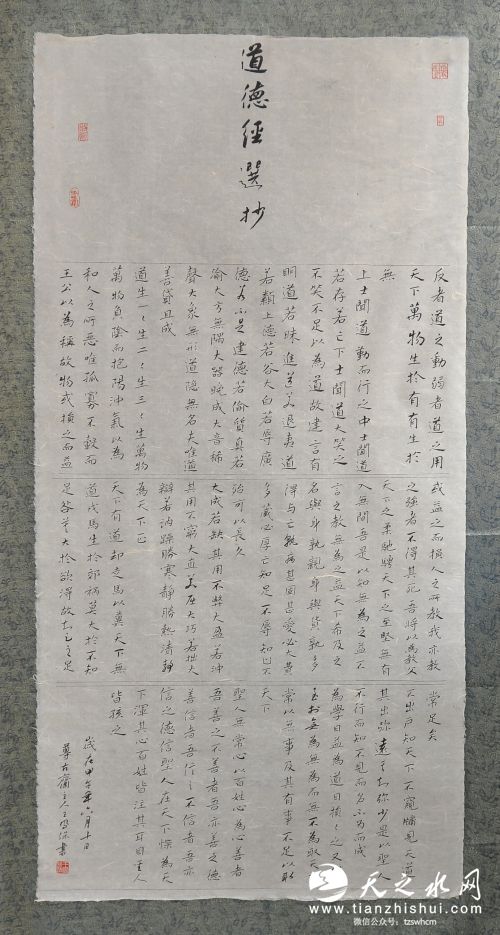 道德經選抄
反者道之動弱者道之用
天下萬物生於有有生於
無
上士聞道勤而行之中士聞道
若存若亡下士聞道大笑之
不笑不足以為道故建言有
明道若昧進道若退夷道
若纇上德若谷大白若辱廣
德若不足建德若偷質真若
渝大方無隅大器晚成大音稀
聲大象無形道隱無名夫唯道
善貸且成
道生一〻生二〻生三〻生萬物
萬物負陰而抱陽沖氣以為
和人之所惡唯孤寡不穀而
王公以為稱故物或損之而益
或益之而損人之所教我亦教
之強者不得其死吾將以為教父
天下之柔馳騁天下之至堅無有
入無間吾是以知無為之益不
言之教無為之益天下希及之
名與身孰親身與貨孰多
得與亡孰病甚愛必大費
多藏必厚亡知足不辱知止不
殆可以長久
大成若缺其用不弊大盈若沖
其用不窮大直若屈大巧若拙大
辯若訥躁勝寒靜勝熱清靜
為天下正
天下有道却走馬以糞天下無
道戎馬生於郊禍莫大於不知
足咎莫大於欲得故知足之足
常足矣
不出戶知天下不窺牖見天道
其出弥遠其知弥少是以聖人
不行而知不見而名不為而成
為學日益為道日損〻之又
無為無為而無不為取天
常以無事及其有事不足以取
天下
聖人無常心以百姓心為心善者
吾善之不善者吾亦善之德
善信者吾信之不信者吾亦
信之德信聖人在天下惵為天
下渾其心百姓皆注其耳目聖人
皆孩之
歲在甲午年六月十日
尊古齋主人
天之水网
www.tianzhishui.com
微信公众号：tzswhcm